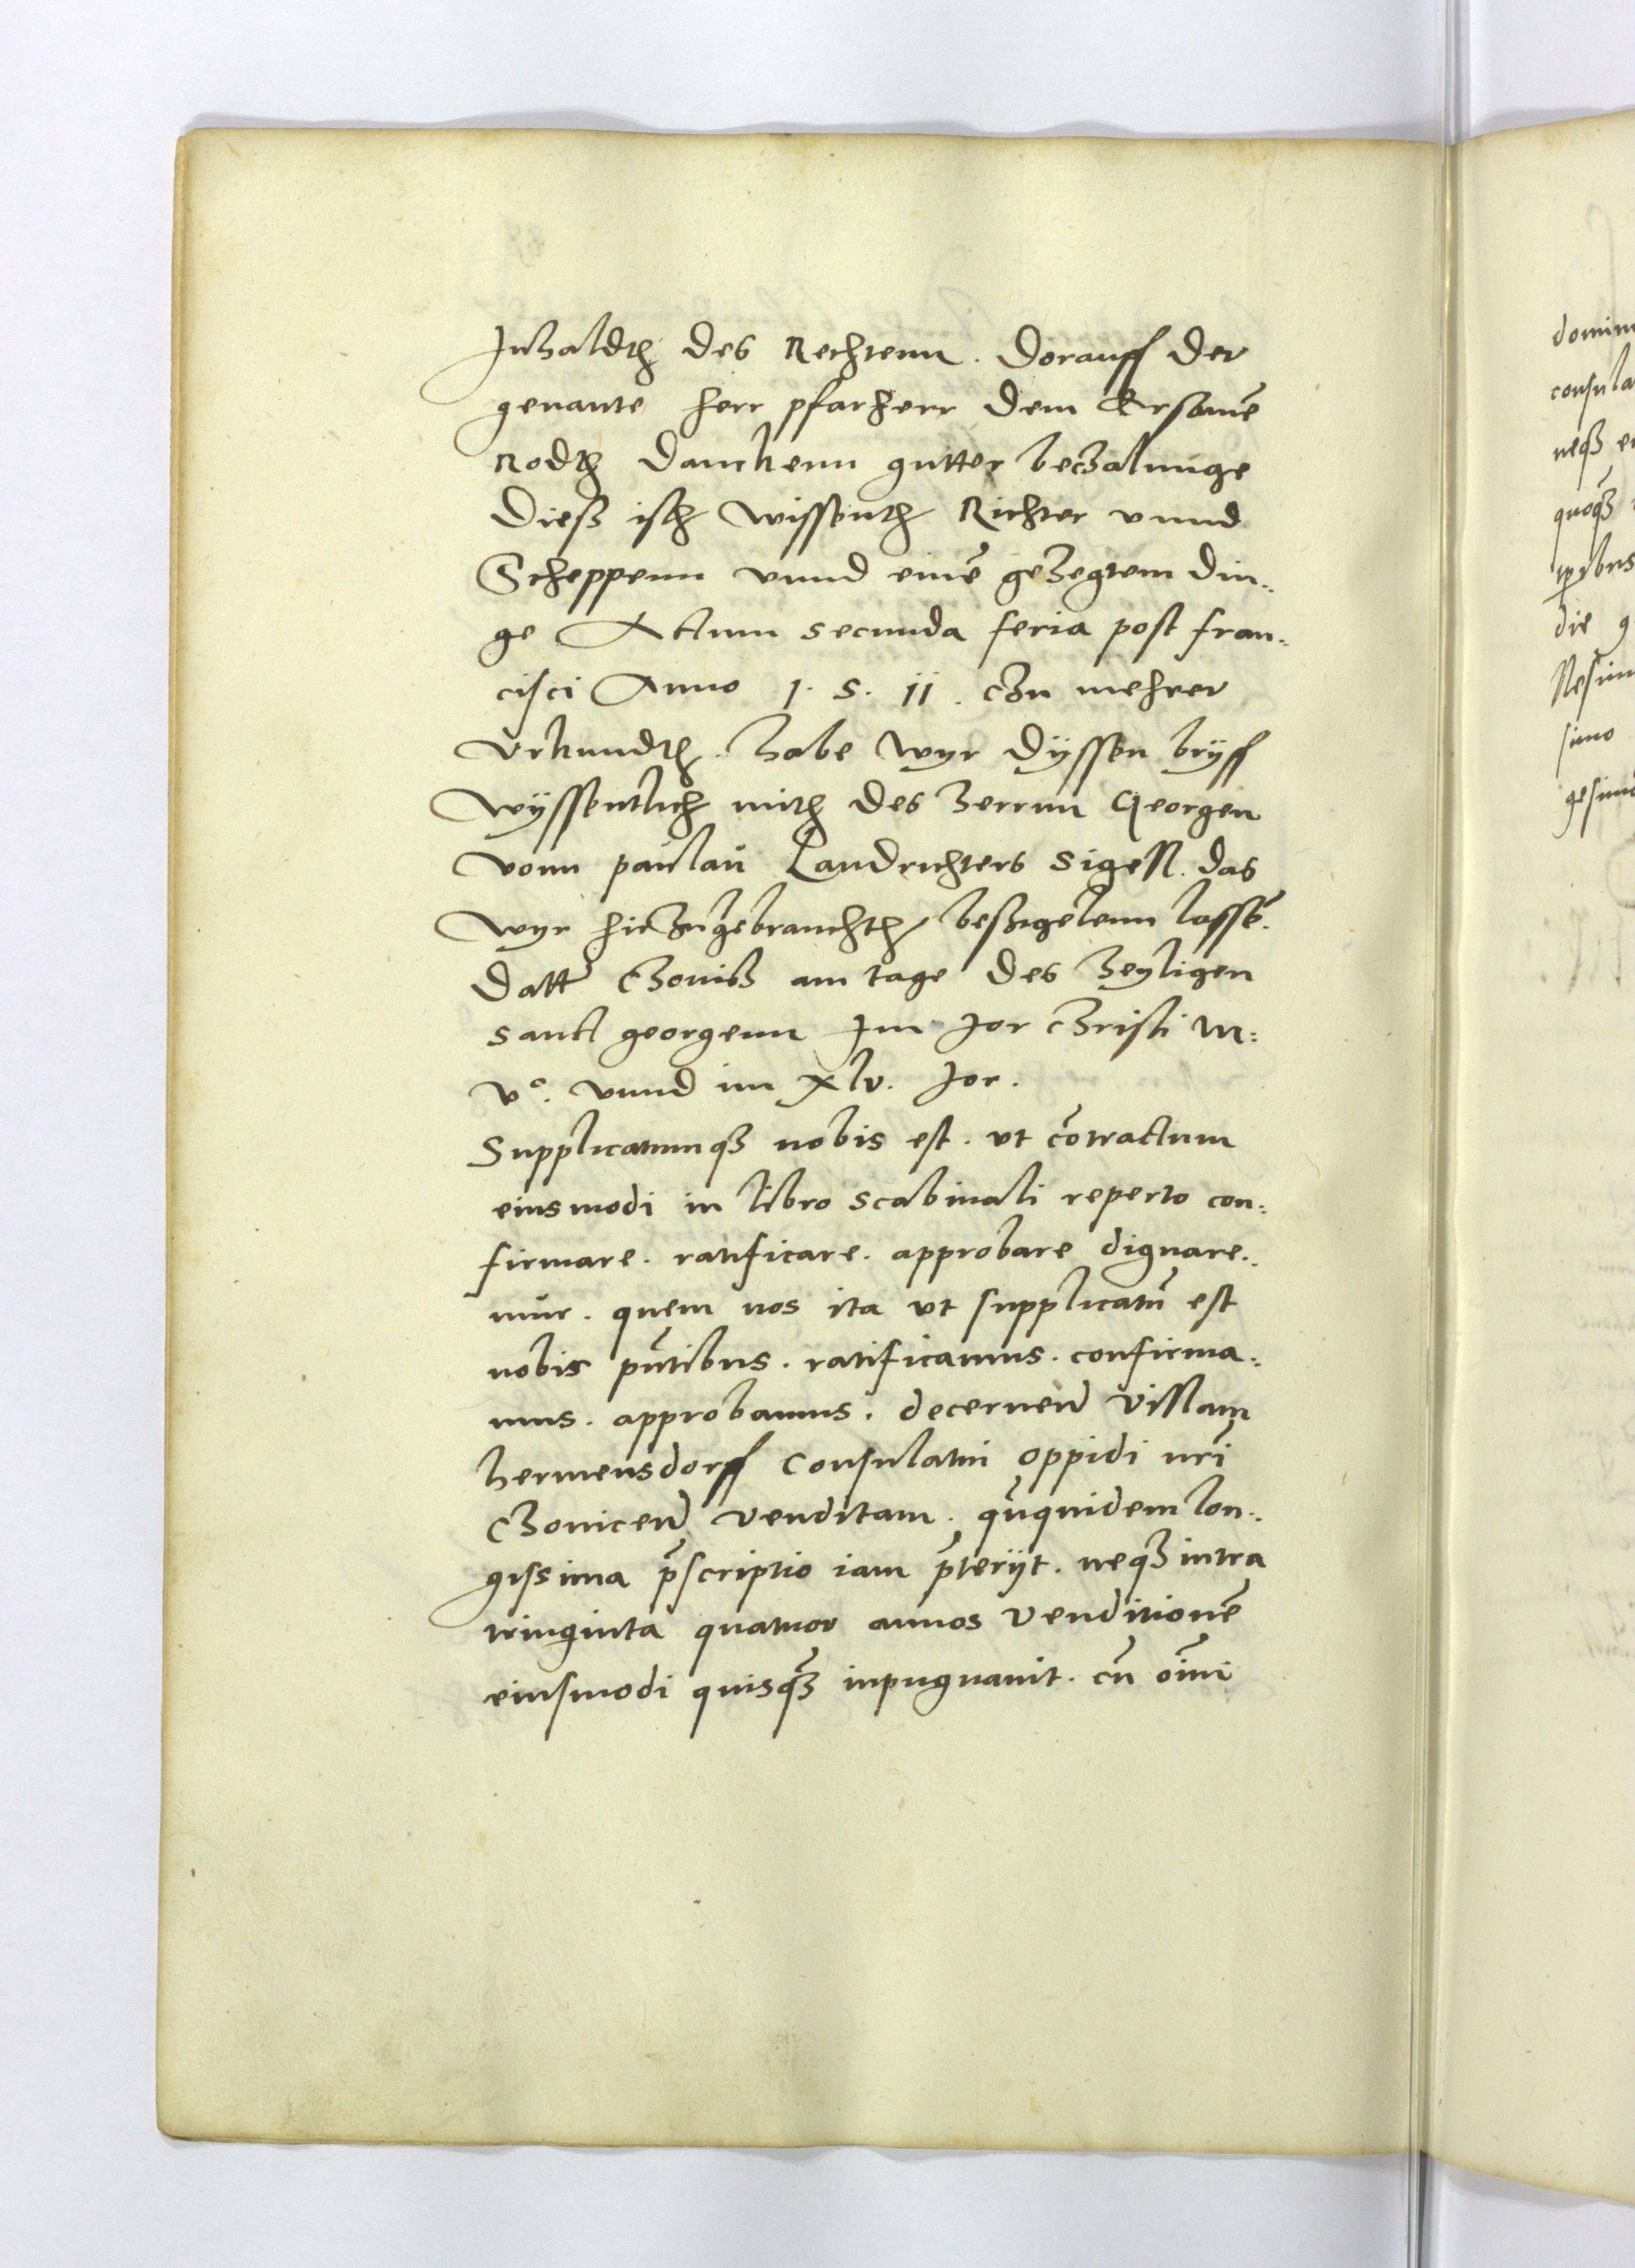 Inhaldth des Rechtenn. Dorauff der
genante herr pfarherr dem Ersamē
Rodth danckenn gutter beczalunge
Diess isth wissenth Richter vnnd
Scheppenn vnnd einē gehegtem din„
ge Actum secunda feria post fran„
cisci Anno 1. 5. 11. czu mehrer
Vrkundth. habe wyr dyssen bryff
wyssentlich mith des herrnn Georgen
vonn paulau Landrichters sigell. das
wyr hiezugebrauchth besigelenn lassē.
Datt Chonitz am tage des heyligen
sanct georgenn Im Jor Christi M:
vᵒ. vnnd im xlv. Jor.
Supplicatumqȝ nobis est. vt cōtractum
eiusmodi in libro scabinali reperto con:
firmare. ratificare. approbare dignare„
mur. quem nos ita vt supplicatū est
nobis pn̄tibus. ratificamus. confirma„
mus. approbamus. decernen villam
hermensdorff Consulatui oppidi nr̄i
Chonicen venditam. qn̄quidem lon„
gissima p̄scriptio iam p̄terijt. neqȝ intra
tringinta quatuor annos venditionē
eiusmodi quisqȝ inpugnauit. cū oīmi
domin
consula
neqȝ
quoqȝ
die g
simo